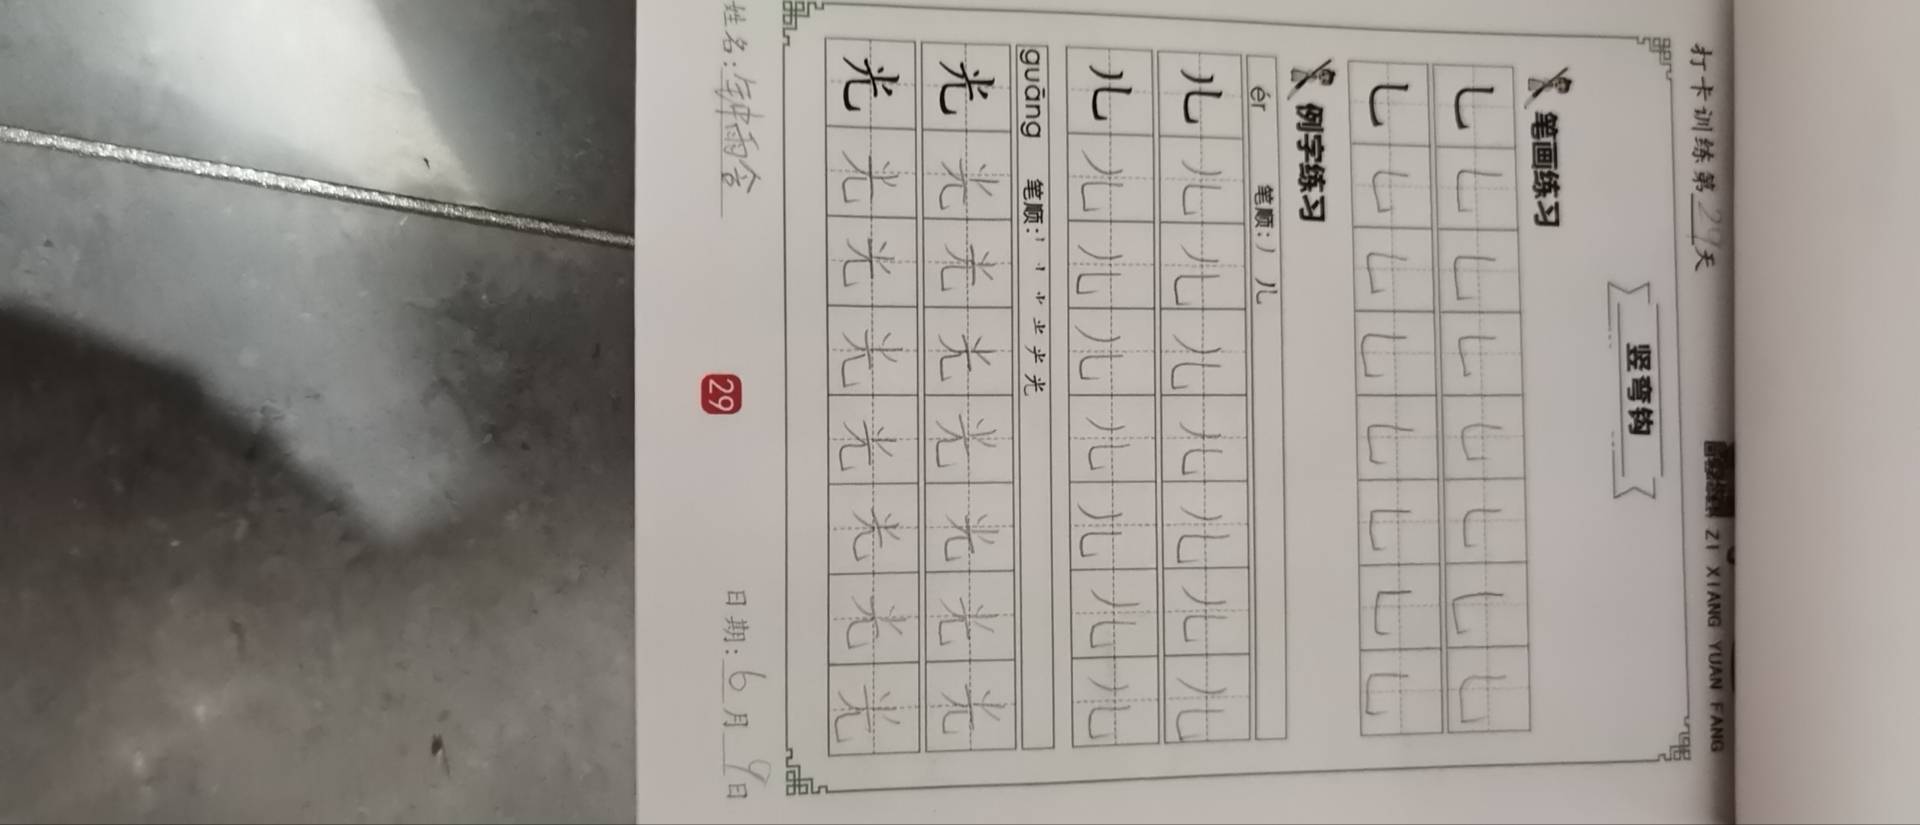 打卡训练第29天
ZI XIANG YUAN FANG
竖弯钩
笔画练习
乚 乚 乚 乚 乚 乚 乚 乚
乚 乚 乚 乚 乚 乚 乚 乚
例字练习
ér 笔顺:丿 儿
儿 儿 儿 儿 儿 儿 儿 儿
儿 儿 儿 儿 儿 儿 儿 儿
guāng 笔顺:
光 光 光 光 光 光 光 光
光 光 光 光 光 光 光 光
姓名:钟雨含
29
日期:6月9日